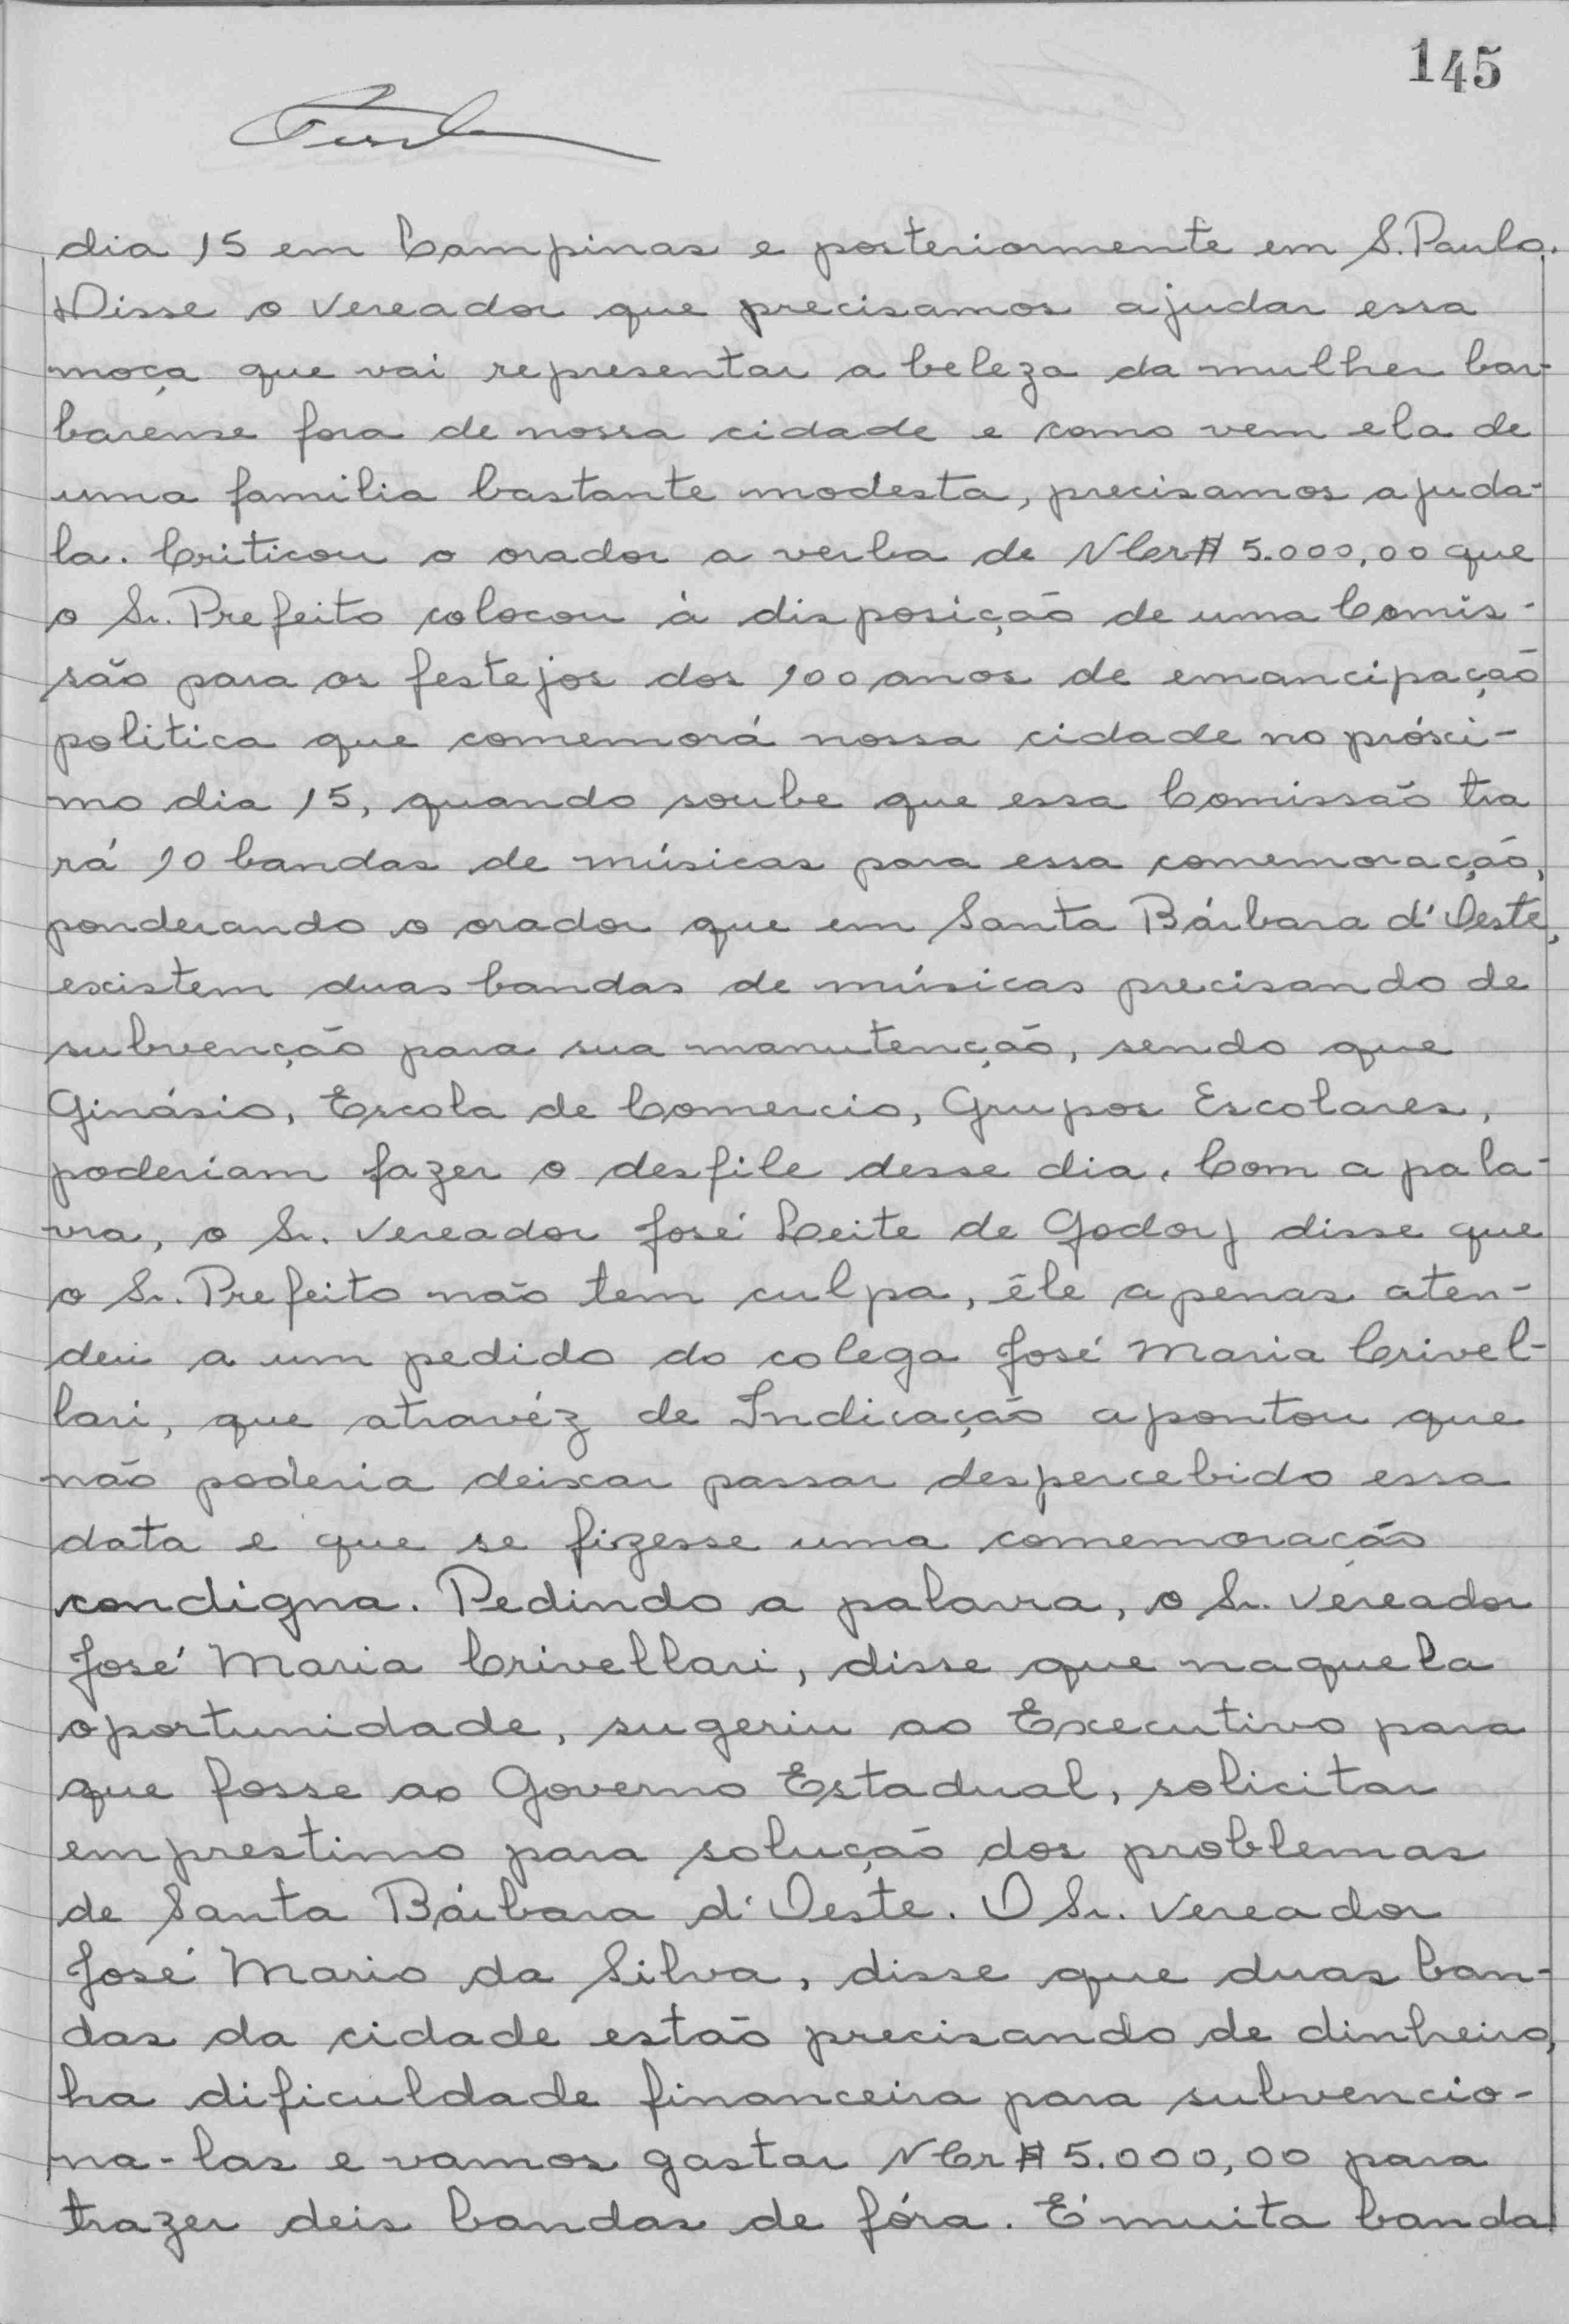 145
dia 15 em Campinas e posteriormente em S. Paulo.
Disse o vereador que precisamos ajudar essa
moça que vai representar a beleza da mulher bar-
barense fora de nossa cidade e como vem ela de
uma familia bastante modesta, precisamos ajuda-
la. Criticou o orador a verba de NCr$ 5.000,00 que
o Sr. Prefeito colocou à disposição de uma Comis-
são para os festejos dos 100 anos de emancipação
politica que comemorá nossa cidade no próxi-
mo dia 15, quando soube que essa Comissão tra
rá 10 bandas de músicas para essa comemoração,
ponderando o orador que em Santa Bárbara d'Oeste,
existem duas bandas de músicas precisando de
subvenção para sua manutenção, sendo que
Ginásio, Escola de Comercio, Grupos Escolares,
poderiam fazer o desfile desse dia. Com a pala-
vra, o Sr. Vereador José Leite de Godoy disse que
o Sr. Prefeito não tem culpa, êle apenas aten-
deu a um pedido do colega José Maria Crivel-
lari, que atravéz de Indicação apontou que
não poderia deixar passar despercebido essa
data e que se fizesse uma comemoração
condigna. Pedindo a palavra, o Sr. Vereador
José Maria Crivellari, disse que naquela
oportunidade, sugeriu ao Executivo para
que fosse ao Governo Estadual, solicitar
emprestimo para solução dos problemas
de Santa Bárbara d'Oeste. O Sr. Vereador
José Mario da Silva, disse que duas ban-
das da cidade estão precisando de dinheiro,
ha dificuldade financeira para subvencio-
na-las e vamos gastar NCr$ 5.000,00 para
trazer deis bandas de fóra. É muita banda